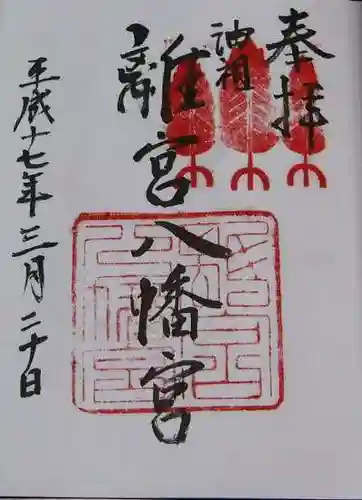 奉拝
油祖
離宮八幡宮
平成十七年三月二十日